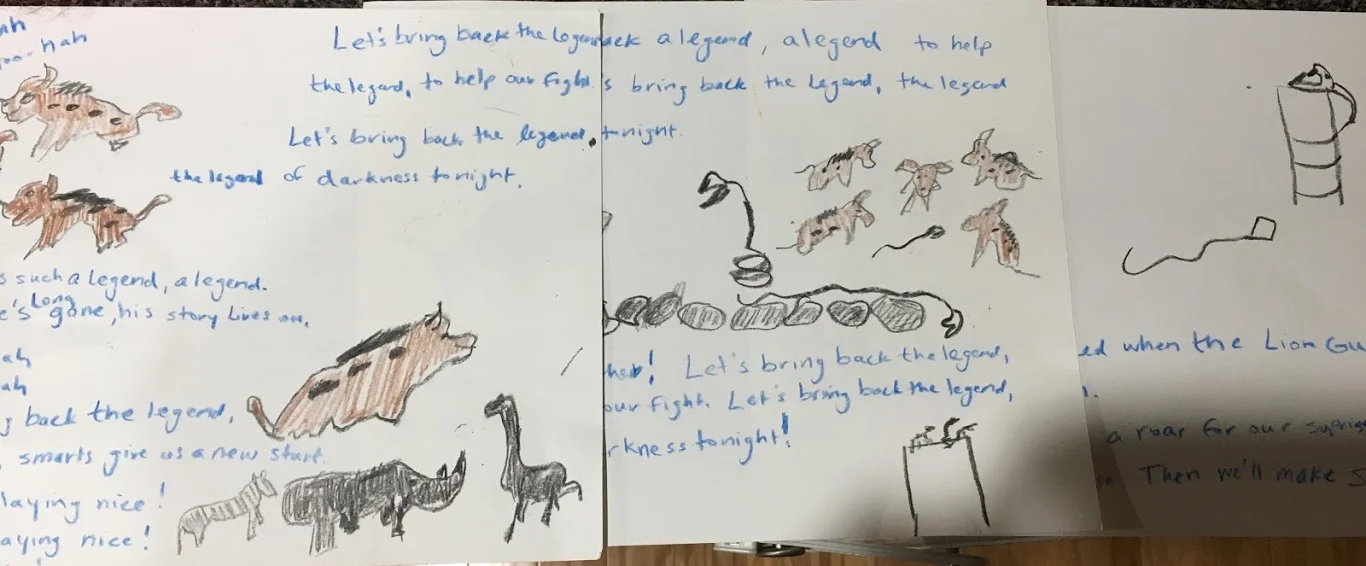 ah
oo-hah
Let's bring back the legend
the legend, to help our fight
Let's bring back the legend,
the legend of darkness tonight.
s such a legend, a legend.
e's long gone, his story lives on.
ah
ah
g back the legend,
, smarts give us a new start.
laying nice!
aying nice!
ack a legend, a legend to help
s bring back the legend, the legend
tonight.
her! Let's bring back the legend,
our fight. Let's bring back the legend,
rkness tonight!
ed when the Lion Gu
.
a roar for our
Then we'll make s